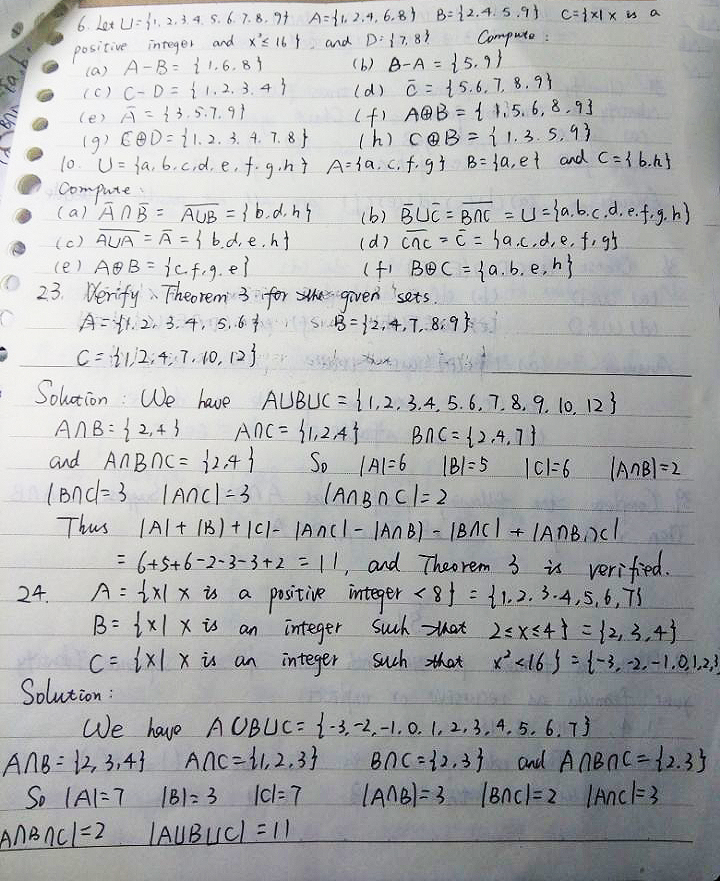 6. Let U={1,2,3,4,5,6,7,8,9} A={1,2,4,6,8} B={2,4,5,9} C={x|x is a
positive integer and x²≤16}, and D={7,8} Compute:
(a) A-B= {1,6,8} (b) B-A = {5,9}
(c) C-D = {1,2,3,4} (d) C̅ = {5,6,7,8,9}
(e) A̅ = {3,5,7,9} (f) A⊕B = {1,5,6,8,9}
(g) C⊕D={1,2,3,4,7,8} (h) C⊕B = {1,3,5,9}
10. U={a,b,c,d,e,f,g,h} A={a,c,f,g} B={a,e} and C={b,h}
Compute:
(a) A̅∩B̅= \overline{A∪B} = {b,d,h} (b) B̅∪C̅ = \overline{B∩C} = U={a,b,c,d,e,f,g,h}
(c) \overline{A∪A} = A̅ = {b,d,e,h} (d) \overline{C∩C} = C̅ = {a,c,d,e,f,g}
(e) A⊕B={c,f,g,e} (f) B⊕C={a,b,e,h}
23. Verify Theorem 3 for the given sets.
A={1,2,3,4,5,6} B={2,4,7,8,9}
C={1,2,4,7,10,12}
Solution: We have A∪B∪C={1,2,3,4,5,6,7,8,9,10,12}
A∩B={2,4} A∩C={1,2,4} B∩C={2,4,7}
and A∩B∩C= {2,4} So |A|=6 |B|=5 |C|=6 |A∩B|=2
|B∩C|=3 |A∩C|=3 |A∩B∩C|=2
Thus |A|+|B|+|C|-|A∩C|-|A∩B|-|B∩C|+|A∩B∩C|
= 6+5+6-2-3-3+2 = 11, and Theorem 3 is verified.
24. A = {x| x is a positive integer <8} = {1,2,3,4,5,6,7}
B= {x| x is an integer such that 2≤x≤4} = {2,3,4}
C= {x| x is an integer such that x²<16} = {-3,-2,-1,0,1,2,3}
Solution:
We have A∪B∪C= {-3,-2,-1,0,1,2,3,4,5,6,7}
A∩B={2,3,4} A∩C={1,2,3} B∩C={2,3} and A∩B∩C={2,3}
So |A|=7 |B|=3 |C|=7 |A∩B|=3 |B∩C|=2 |A∩C|=3
A∩B∩C|=2 |A∪B∪C|=11